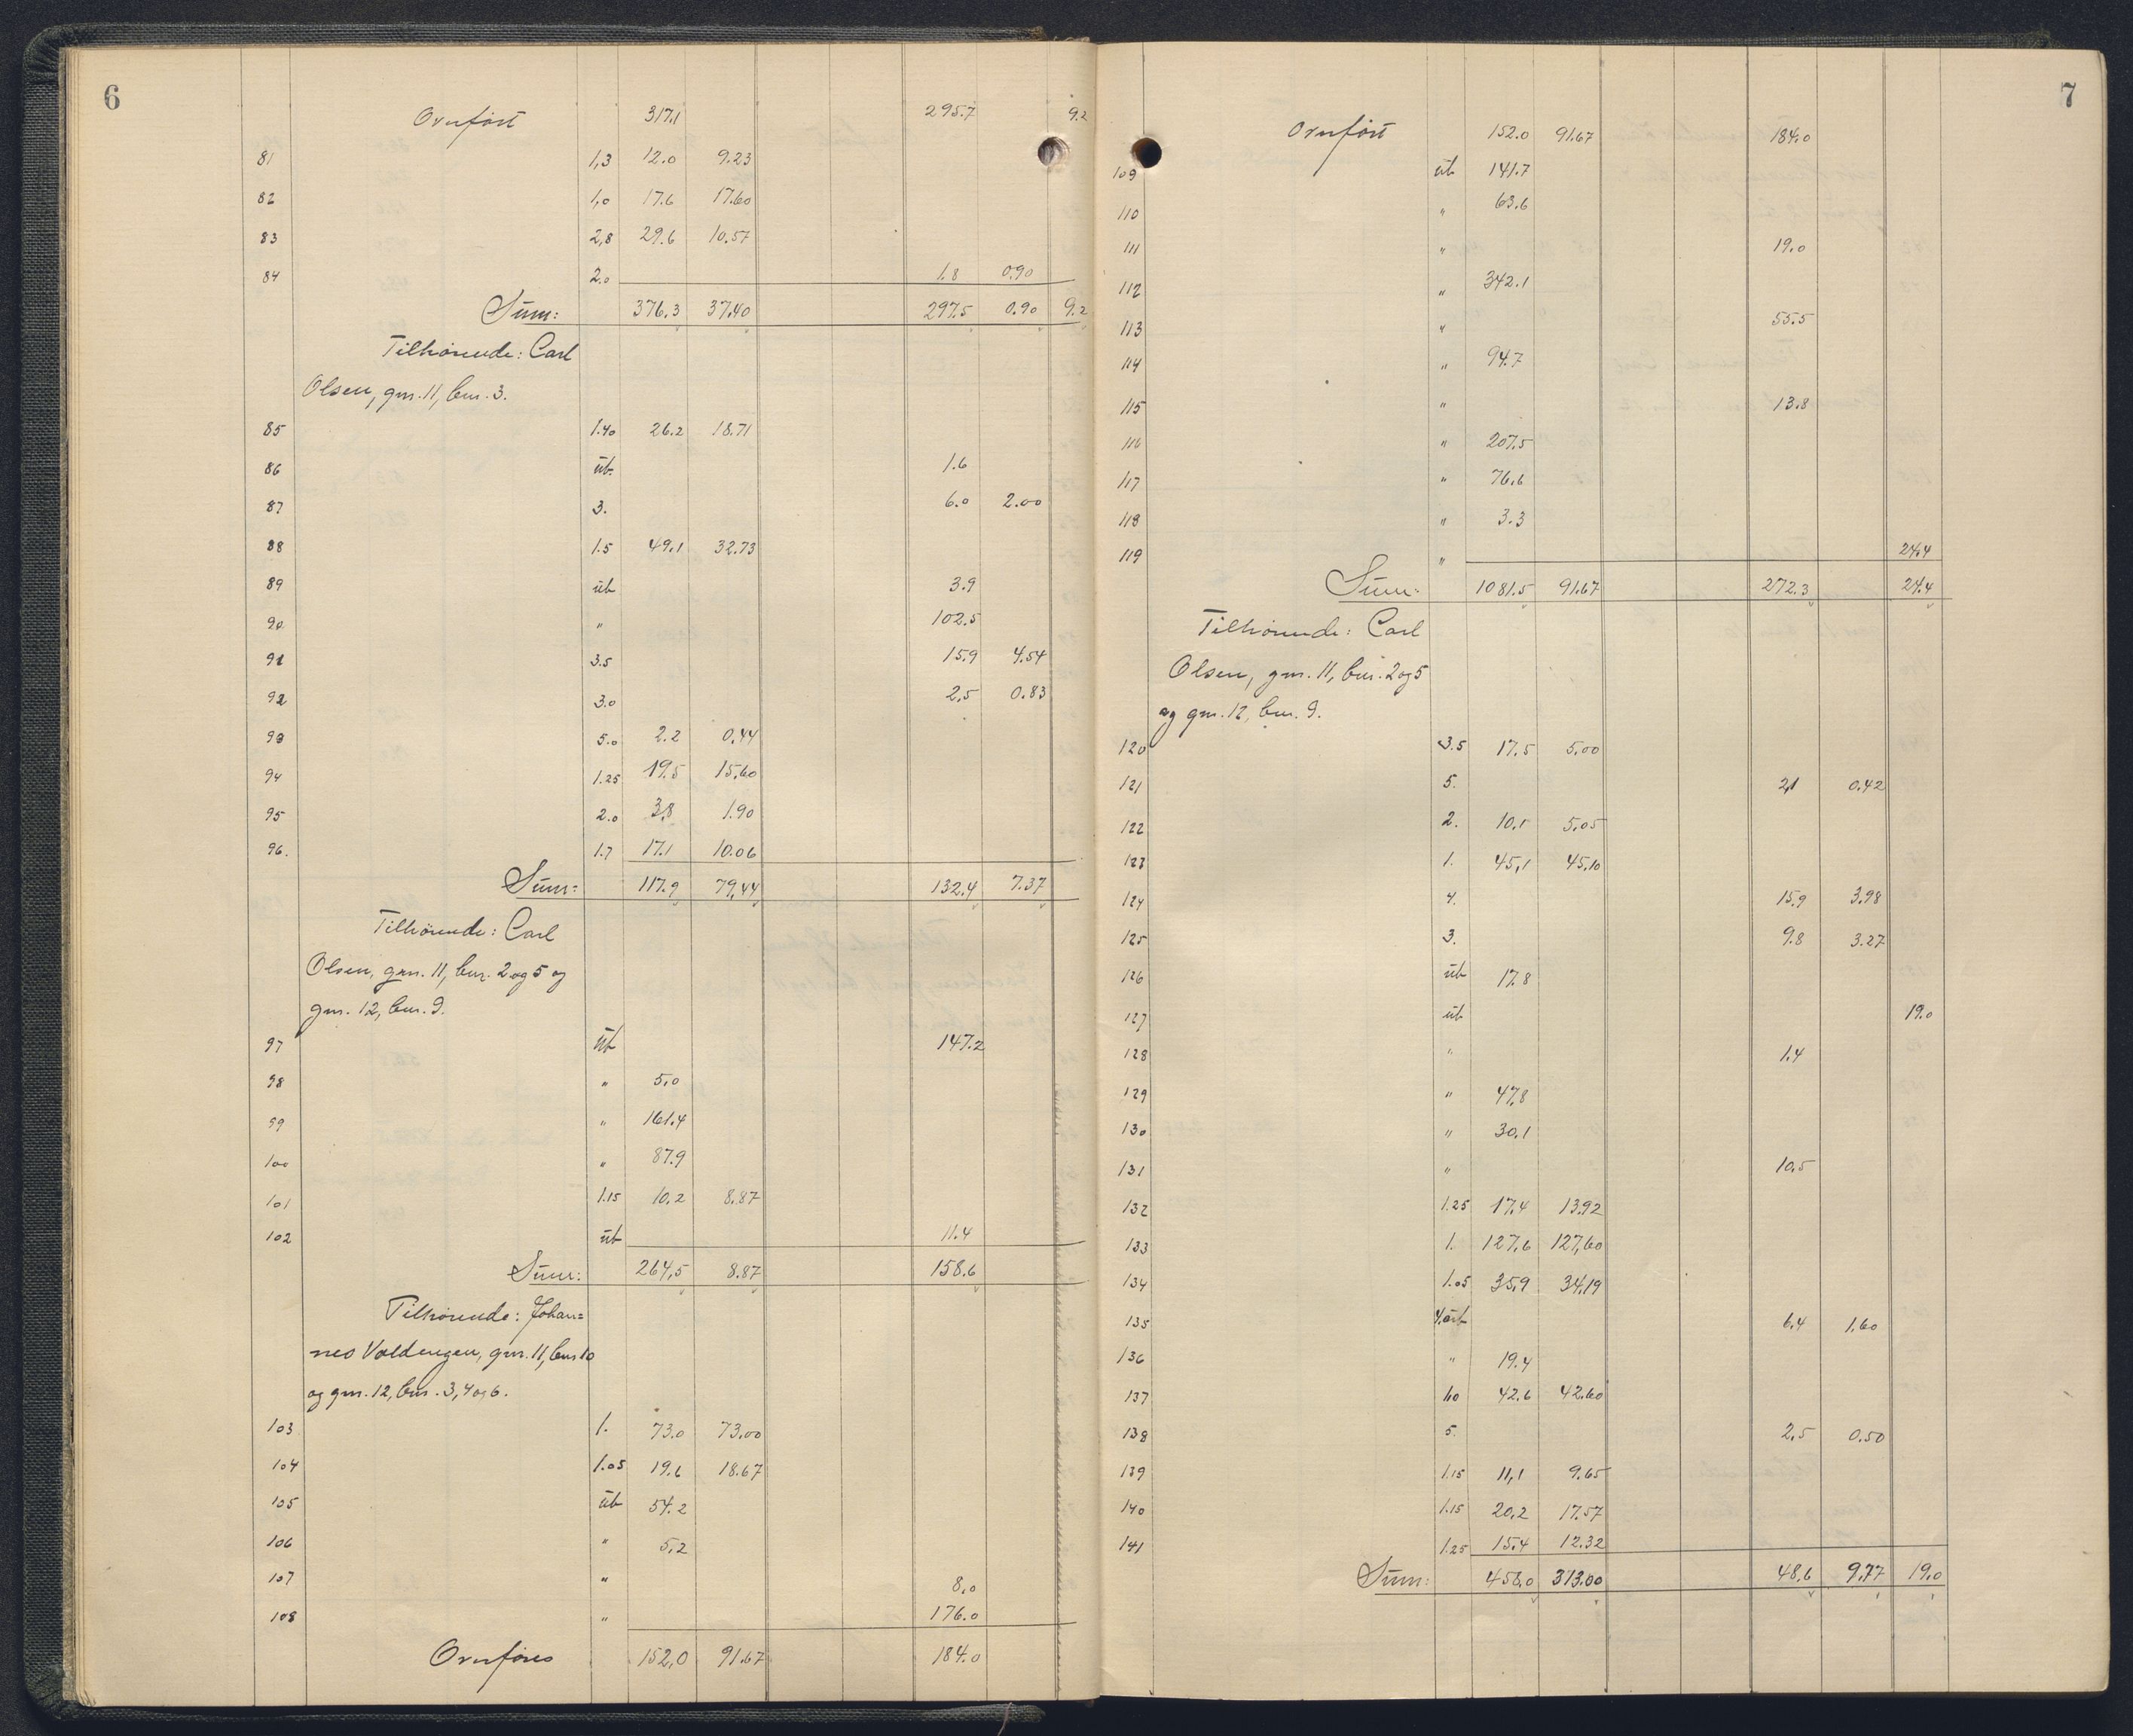 6
Overført 317.1 295.7 9.2
81 1,3 12.0 9.23
82 1,0 17.6 17.60
83 2,8 29.6 10.57
84 2.0 1.8 0.90
Sum: 376.3 37.40 297.5 0.90 9.2
Tilhørende: Carl
Olsen, gnr. 11, bnr. 3.
85 1.40 26.2 18.71
86 üb. 1.6
87 3. 6.0 2.00
88 1.5 49.1 32.73
89 üb 3.9
90 " 102.5
91 3.5 15.9 4.54
92 3.0 2.5 0.83
93 5.0 2.2 0.44
94 1.25 19.5 15.60
95 2.0 3.8 1.90
96. 1.7 17.1 10.06
Sum: 117.9 79.44 132.4 7.37
Tilhörende: Carl
Olsen, gnr. 11, bnr. 2 og 5 og
gnr. 12, bnr. 9.
97 üb 147.2
98 " 5.0
99 " 161.4
100 " 87.9
101 1.15 10.2 8.87
102 üb 11.4
Sum: 264,5 8.87 158.6
Tilhørende: Johan=
nes Valdengen, gnr. 11, bnr 10
og gnr. 12, bnr. 3, 4 og 6.
103 1. 73.0 73.00
104 1.05 19.6 18.67
105 üb 54.2
106 " 5,2
107 " 8,0
108 " 176.0
Overføres 152,0 91.67 184.0
7
Overført 152.0 91.67 184.0
109 üb 141.7
110 " 63.6
111 " 19.0
112 " 342.1
113 " 55.5
114 " 94.7
115 " 13.8
116 " 207.5
117 " 76.6
118 " 3.3
119 " 24.4
Sum: 1081.5 91.67 272.3 24.4
Tilhørende: Carl
Olsen, gnr. 11, bnr. 2 og 5
og gnr. 12, bnr. 9.
120 3.5 17.5 5.00
121 5. 2,1 0.42
122 2. 10.1 5.05
123 1. 45,1 45,10
124 4. 15.9 3.98
125 3. 9.8 3.27
126 üb 17.8
127 üb 19.0
128 " 1.4
129 " 47,8
130 " 30.1
131 " 10.5
132 1.25 17.4 13.92
133 1. 127,6 127,60
134 1.05 35,9 34,19
135 6.4 1,60
136 " 19.4
137 1.0 42.6 42.60
138 5. 2,5 0.50
139 1.15 11,1 9.65
140 1.15 20,2 17.57
141 1.25 15.4 12.32
Sum: 458.0 313.00 48.6 9.77 19.0